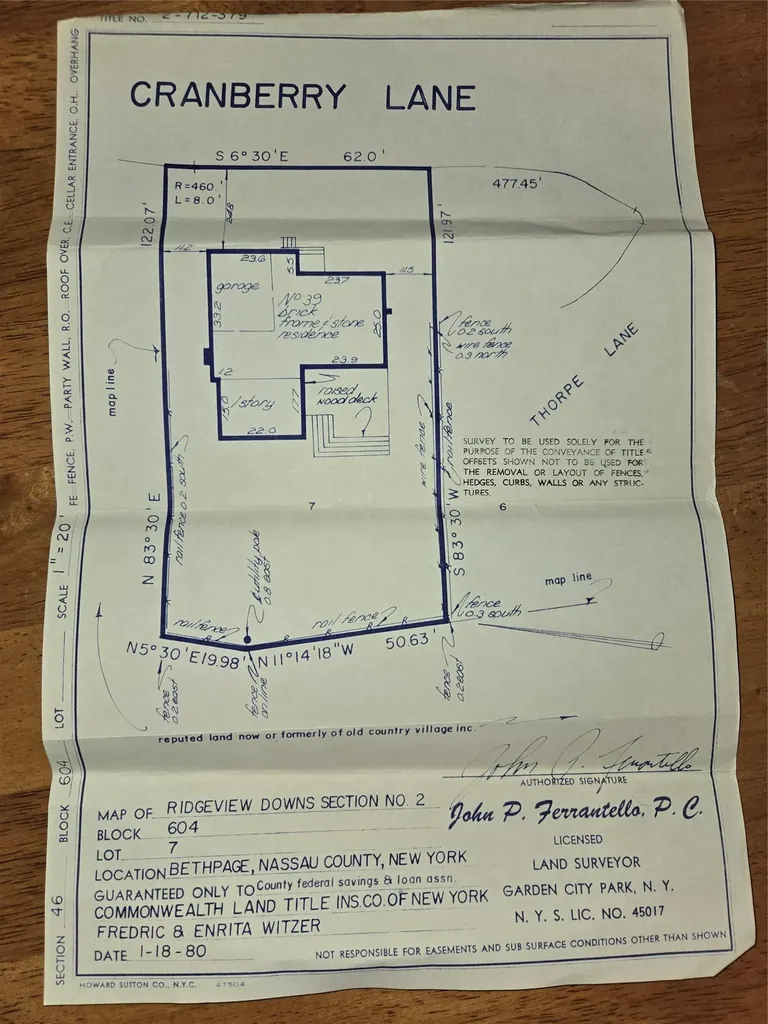 TITLE NO. 2-712-379
CRANBERRY LANE
S 6° 30' E 62.0'
R=460.'
L=8.0'
477.45'
122.07'
121.97'
24.8
11.2
23.6
5.5
23.7
11.5
garage
Nº 39
brick
frame & stone
residence
33.2
25.0
fence
0.2 south
wire fence
0.9 north
23.9
1.2
raised
wood deck
1 story
15.0
17.7
22.0
map line
THORPE LANE
SURVEY TO BE USED SOLELY FOR THE
PURPOSE OF THE CONVEYANCE OF TITLE
OFFSETS SHOWN NOT TO BE USED FOR
THE REMOVAL OR LAYOUT OF FENCES,
HEDGES, CURBS, WALLS OR ANY STRUC-
TURES.
wire fence
rail fence
rail fence 0.2 south
7
6
N 83° 30' E
S 83° 30' W
utility pole
0.8 east
map line
fence
0.3 south
rail fence
rail fence
N5° 30' E 19.98'
N 11° 14' 18" W 50.63'
fence
0.2 east
fence
on line
fence
0.2 east
reputed land now or formerly of old country village inc.
John P. Ferrantello
AUTHORIZED SIGNATURE
MAP OF RIDGEVIEW DOWNS SECTION NO. 2
BLOCK 604
LOT 7
LOCATION BETHPAGE, NASSAU COUNTY, NEW YORK
GUARANTEED ONLY TO County federal savings & loan assn.
COMMONWEALTH LAND TITLE INS. CO. OF NEW YORK
FREDRIC & ENRITA WITZER
DATE 1-18-80
John P. Ferrantello, P. C.
LICENSED
LAND SURVEYOR
GARDEN CITY PARK, N. Y.
N. Y. S. LIC. NO. 45017
NOT RESPONSIBLE FOR EASEMENTS AND SUB SURFACE CONDITIONS OTHER THAN SHOWN
HOWARD SUTTON CO., N.Y.C. 47504
SECTION 46 BLOCK 604 LOT SCALE 1" = 20' FE. FENCE, P.W. PARTY WALL, R.O. ROOF OVER, C.E. CELLAR ENTRANCE, O.H. OVERHANG